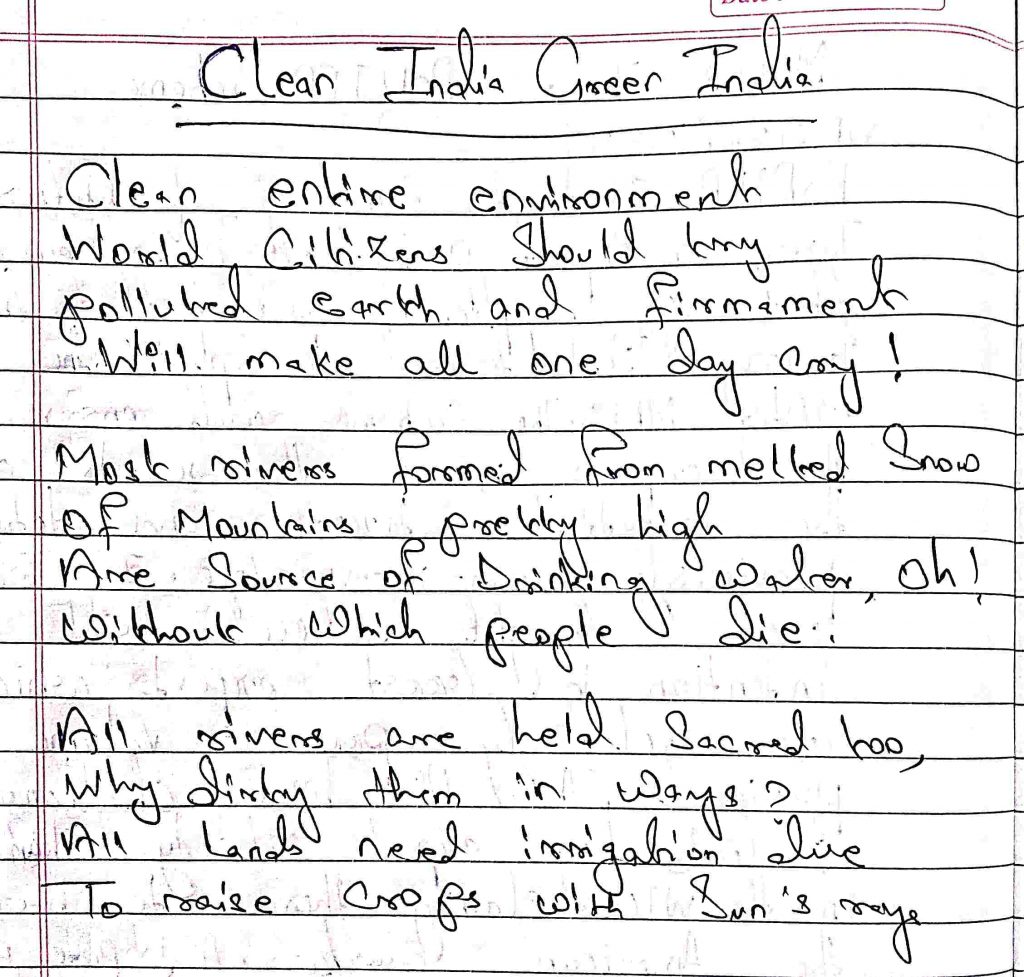 Clean India Green India
Clean entire environment
World Citizens Should try
polluted earth and firmament
Will make all one day cry!
Most rivers formed from melted Snow
Of Mountains pretty high
Are Source of Drinking water, Oh!
Without which people die:
All rivers are held Sacred too,
Why dirty them in ways?
All Lands need irrigation due
To raise crops with Sun's rays